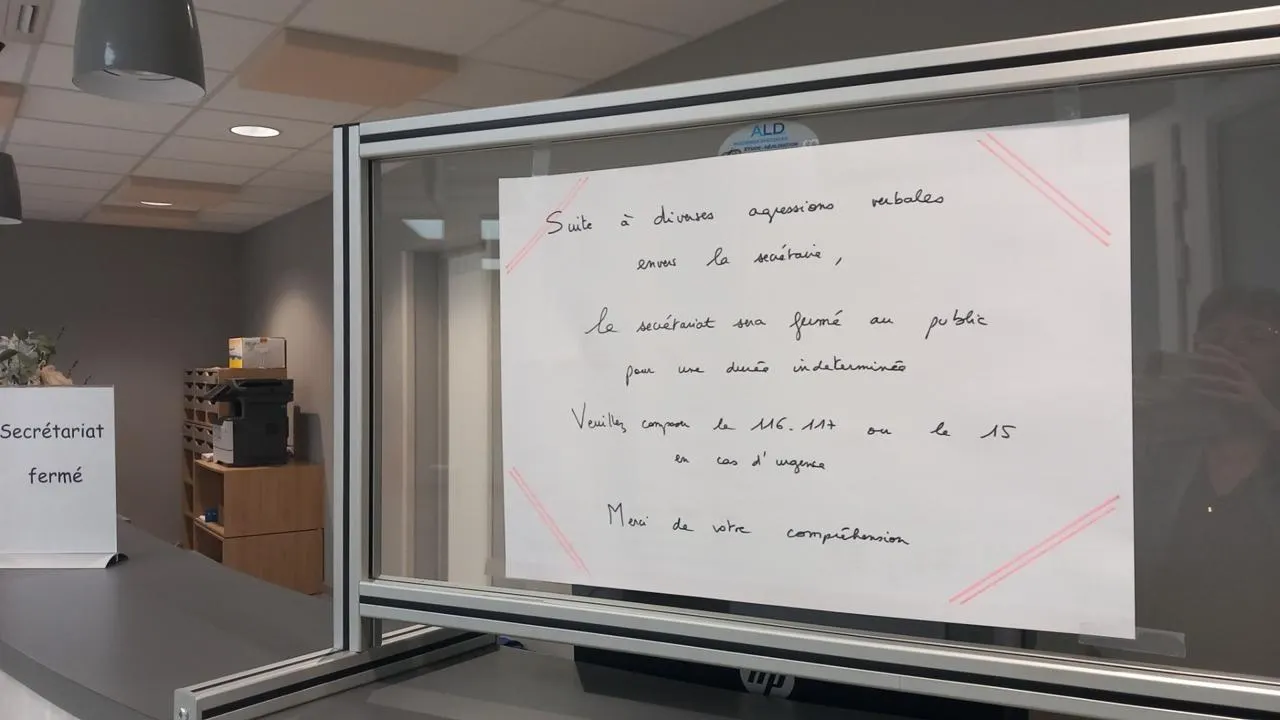 Suite à diverses agressions verbales
envers la secrétaire,
le secrétariat sera fermé au public
pour une durée indeterminée
Veuillez composer le 116-117 ou le 15
en cas d'urgence
Merci de votre compréhension
Secrétariat
fermé
ALD
hp